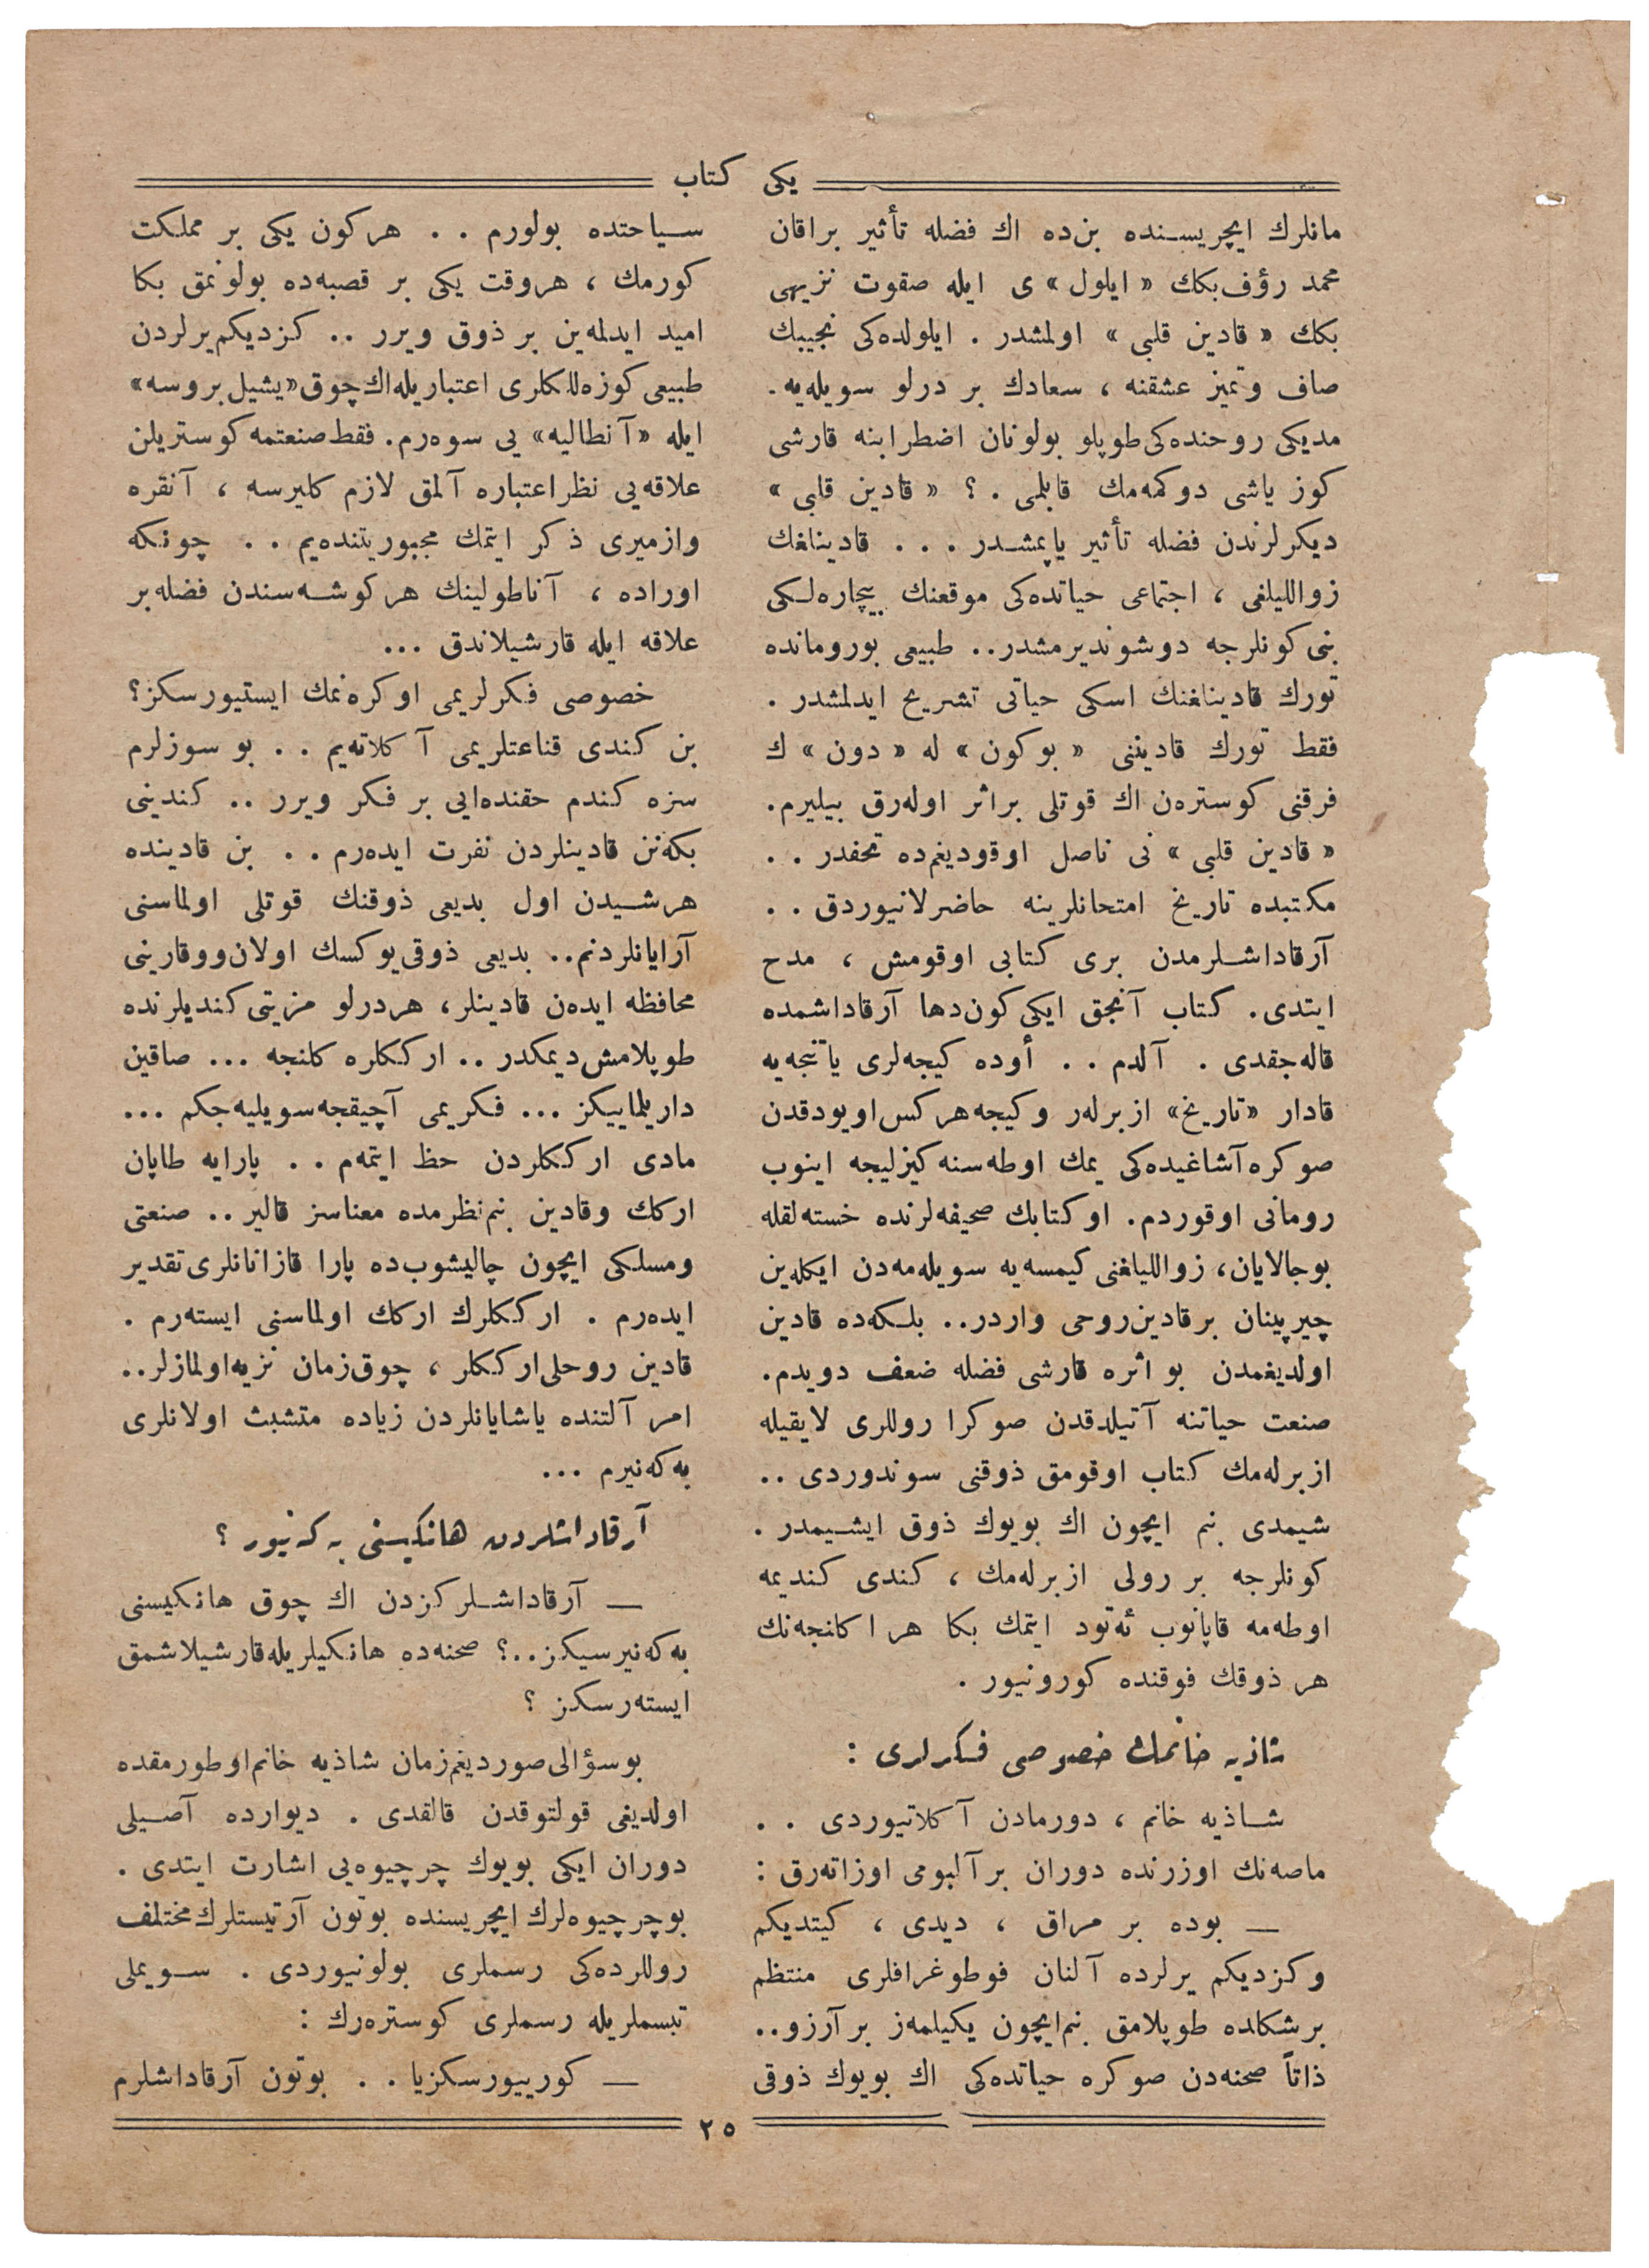 یکی کتاب
مانلرك ایچریسنده بن‌ده اك فضله تأثیر براقان
محمد رؤف‌بكك « ایلول » ی ایله صفوت نزیهی
بكك « قادین قلبی » اولمشدر . ایلولده‌کی نجیبك
صاف وتمیز عشقنه ، سعادك بر درلو سویله‌یه‌ـ
مدیکی روحنده‌کی طوپلو بولونان اضطرابنه قارشی
کوز یاشی دوکمه‌مك قابلمی . ؟ « قادین قلبی »
دیکرلرندن فضله تأثیر یاپمشدر . . . قادینلغك
زواللیلغی ، اجتماعی حیاتده‌کی موقعنك بیچاره‌لکی
بنی کونلرجه دوشوندیرمشدر.. طبیعی بوروماندە
تورك قادینلغنك اسکی حیاتی تشریح ایدلمشدر .
فقط تورك قادیننی « بوکون » له « دون » ك
فرقنی کوسترەن اك قوتلی براثر اوله‌رق بیلیرم.
« قادین قلبی » نی ناصل اوقودیغم‌ده تحفدر . .
مکتبده تاریخ امتحانلرینه حاضرلانیوردق . .
آرقاداشلرمدن بری کتابی اوقومش ، مدح
ایتدی . کتاب آنجق ایکی کون‌دها آرقاداشمده
قاله‌جقدی . آلدم . . أوده کیجه‌لری یاتنجه‌یه
قادار «تاریخ» ازبرلەر وکیجه هرکس اویودقدن
صوکره آشاغیده‌کی یمك اوطه‌سنه کیزلیجه اینوب
رومانی اوقوردم. اوکتابك صحیفه‌لرنده خسته‌لقله
بوجالایان، زواللیلغنی کیمسه‌یه سویله‌مه‌دن ایکله‌ین
چیرپینان برقادین‌روحی واردر.. بلکه‌ده قادین
اولدیغمدن بو اثره قارشی فضله ضعف دویدم.
صنعت حیاتنه آتیلدقدن صوکرا روللری لایقیله
ازبرله‌مك کتاب اوقومق ذوقنی سوندوردی ..
شیمدی بنم ایچون اك بویوك ذوق ایشیمدر .
کونلرجه بر رولی ازبرله‌مك ، کندی کندیمه
اوطه‌مه قاپانوب ئه‌تود ایتمك بکا هر اکلنجه‌نك
هر ذوقك فوقنده کورونیور .
شاذیه خانمك خصوصی فکرلری :
شاذیه خانم ، دورمادن آ کلاتیوردی . .
ماصه‌نك اوزرنده دوران برآلبومی اوزاته‌رق :
— بوده بر مراق ، دیدی ، کیتدیکم
وکزدیکم یرلرده آلنان فوطوغرافلری منتظم
برشکلده طوپلامق بنم‌ایچون یکیلمه‌ز برآرزو..
ذاتاً صحنه‌دن صوکره حیاتده‌کی اك بویوك ذوقی
سیاحتده بولورم . . هرکون یکی بر مملکت
کورمك ، هروقت یکی بر قصبه‌ده بولونمق بکا
امید ایدلمه‌ین بر ذوق ویرر .. کزدیکم‌یرلردن
طبیعی کوزه‌للکلری اعتباریله‌اك‌چوق «یشیل‌بروسه»
ایله «آنطالیه» یی سوه‌رم. فقط صنعتمه کوستریلن
علاقه‌یی نظر اعتباره آلمق لازم کلیرسه ، آنقره
وازمیری ذکر ایتمك مجبوریتنده‌یم . . چونکه
اوراده ، آناطولینك هرکوشه‌سندن فضله‌بر
علاقه ایله قارشیلاندق ...
خصوصی فکرلریمی اوکره‌نمك ایستیورسکز؟
بن کندی قناعتلریمی آ کلاته‌یم . . بو سوزلرم
سزه کندم حقنده‌ایی بر فکر ویرر .. کندینی
بکه‌نن قادینلردن نفرت ایده‌رم . . بن قادینده
هرشیدن اول بدیعی ذوقنك قوتلی اولماسنی
آرایانلردنم.. بدیعی ذوقی‌یوکسك اولان‌ووقارینی
محافظه ایدەن قادینلر، هردرلو مزیتی کندیلرنده
طوپلامش‌دیمکدر .. ارککلره کلنجه ... صاقین
داریلماییکز ... فکریمی آچیقجه‌سویلیه‌جکم ...
مادی ارککلردن حظ ایتمه‌م . . پارایه طاپان
ارکك وقادین بنم‌نظرمده معناسز قالیر .. صنعتی
ومسلکی ایچون چالیشوب‌ده پارا قازانانلری تقدیر
ایده‌رم . ارککلرك ارکك اولماسنی ایسته‌رم .
قادین روحلی‌ارککلر ، چوق‌زمان نزیه‌اولمازلر..
امر آلتنده یاشایانلردن زیاده متشبث اولانلری
به‌که‌نیرم ...
آرقاداشلردن هانکیسنی به‌که‌نیور ؟
— آرقاداشلرکزدن اك چوق هانکیسنی
به‌که‌نیرسیکز..؟ صحنه‌ده هانکیلریله‌قارشیلاشمق
ایسته‌رسکز ؟
بوسؤالی‌صوردیغم‌زمان شاذیه خانم‌اوطورمقده
اولدیغی قولتوقدن قالقدی . دیوارده آصیلی
دوران ایکی بویوك چرچیوه‌یی اشارت ایتدی .
بوچرچیوه‌لرك ایچریسنده بوتون آرتیستلرك‌مختلف
روللرده‌کی رسملری بولونیوردی . سویملی
تبسملریله رسملری کوستره‌رك :
— کوریيورسکزیا . . بوتون آرقاداشلرم
٢٥